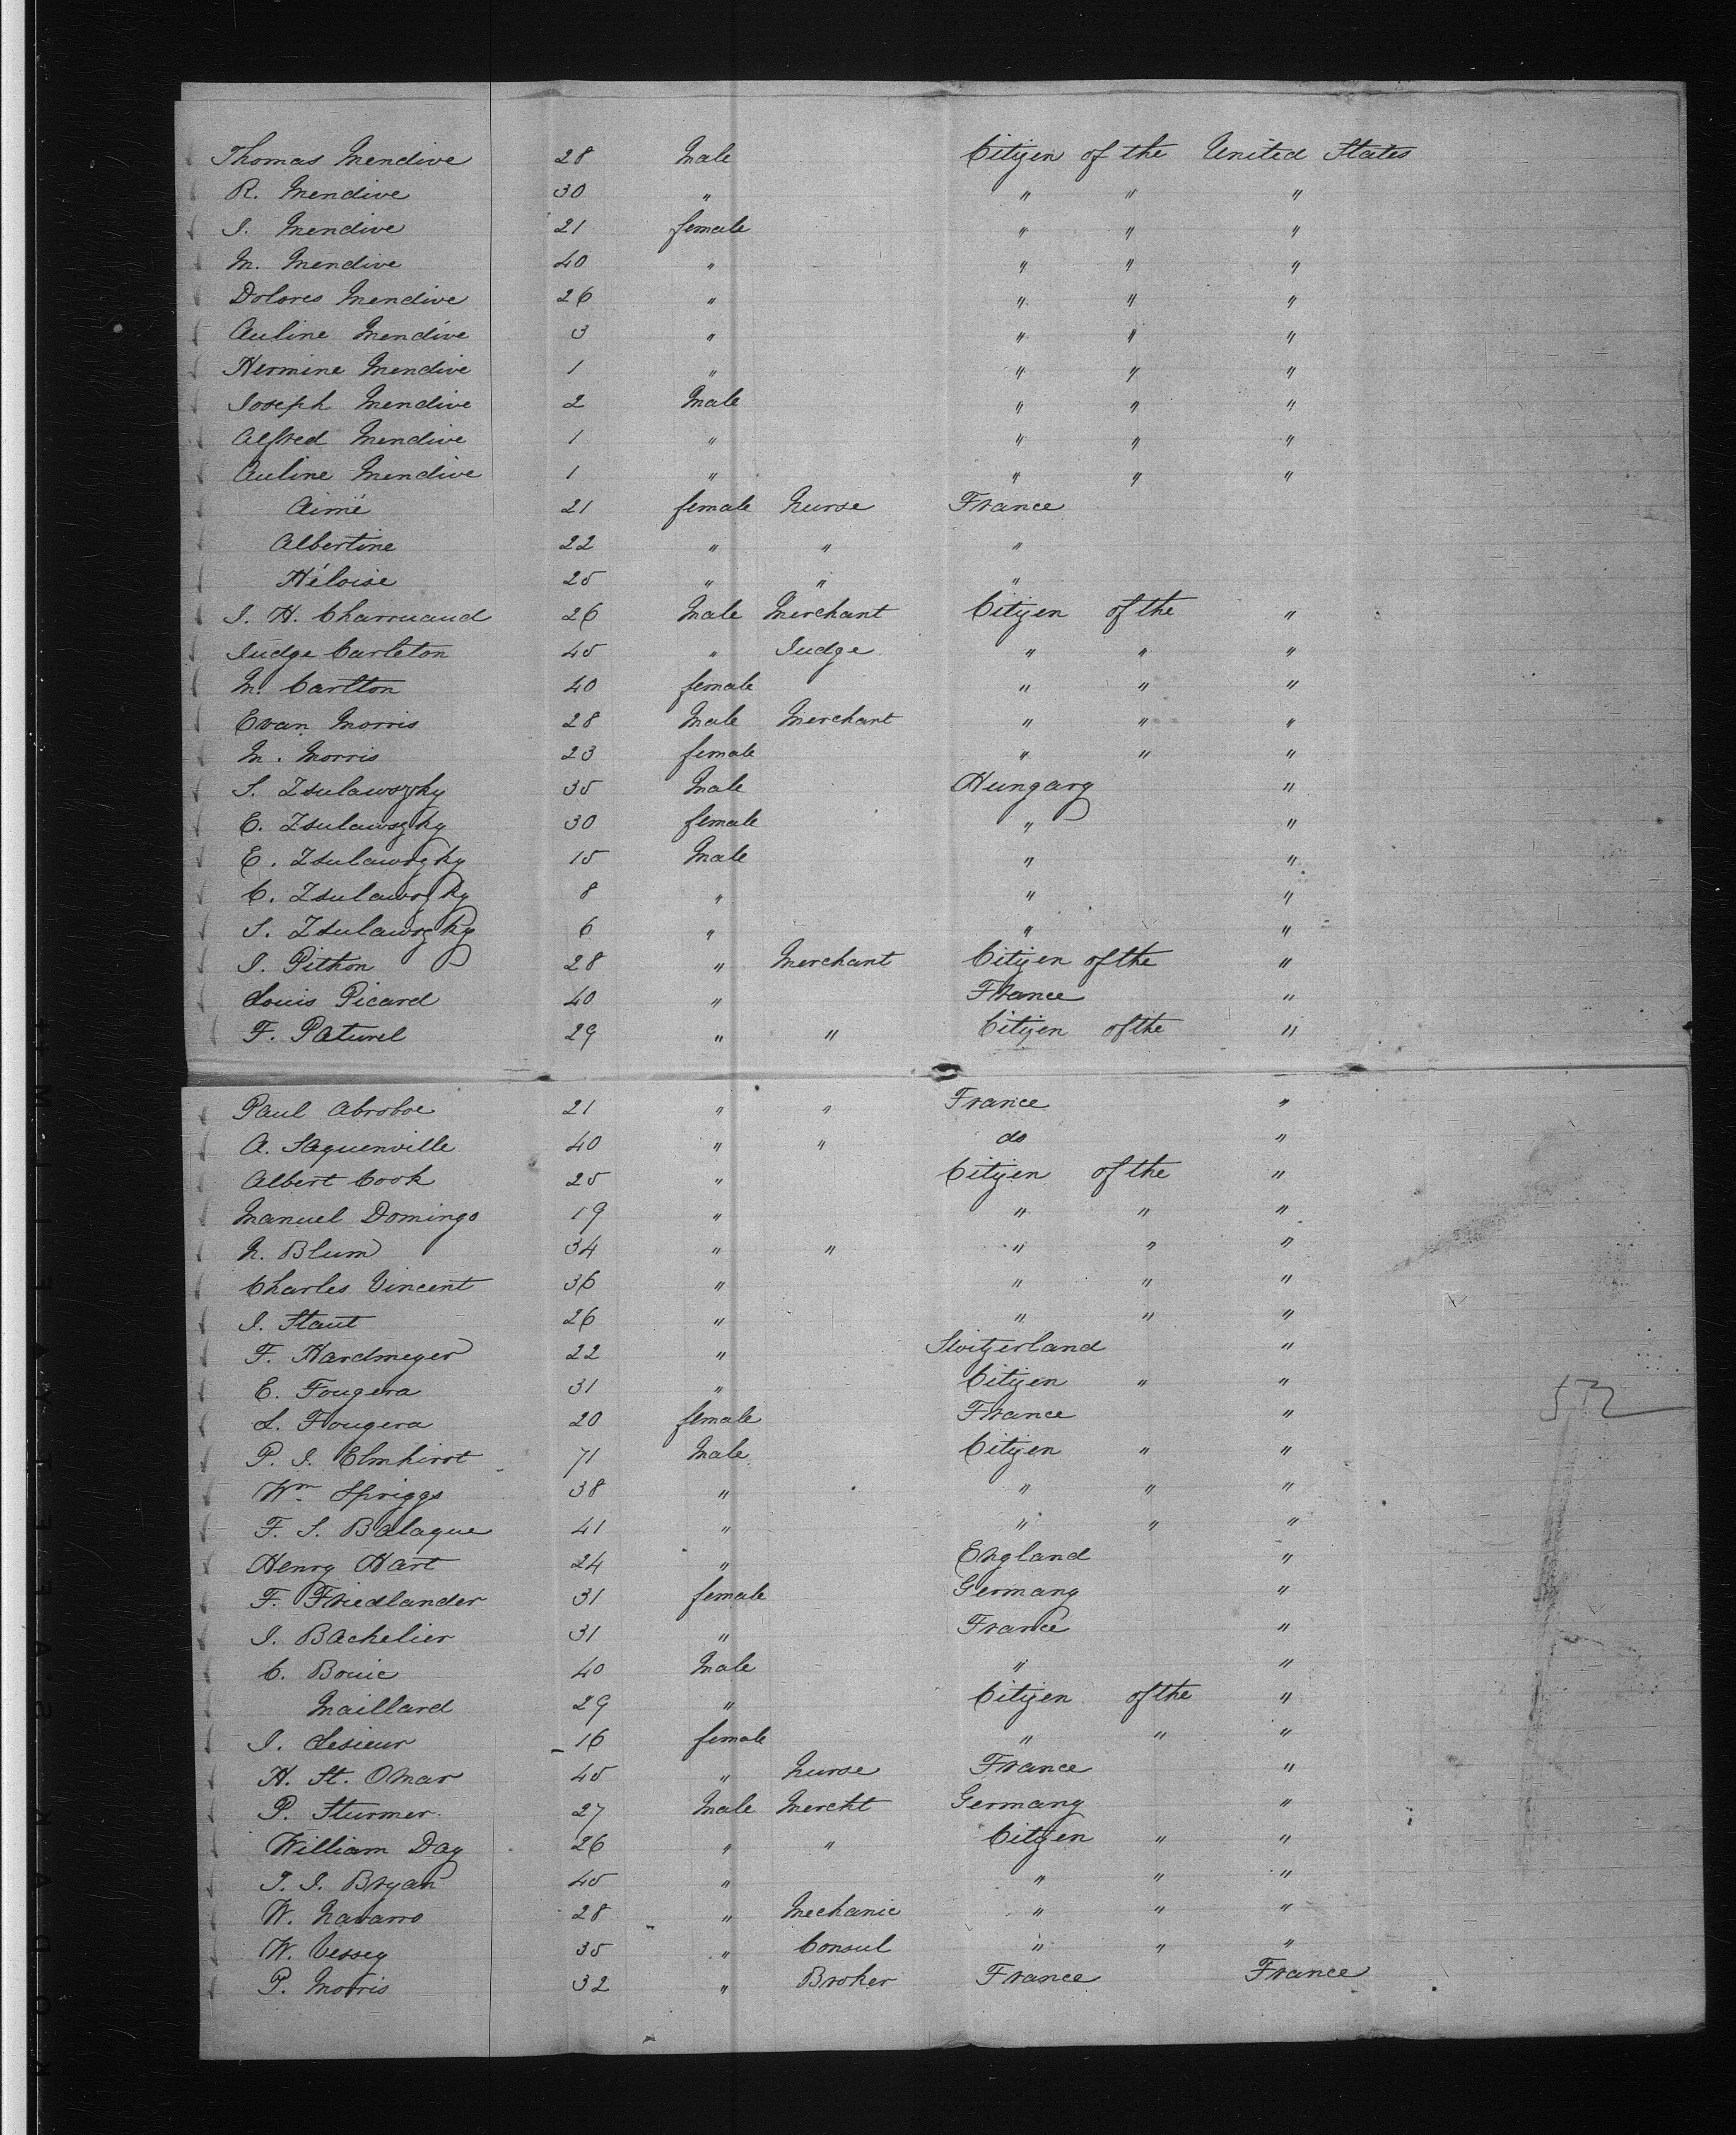 Thomas Mendive 28 Male Citizen of the United States
R. Mendive 30 " " " "
I. Mendive 21 female " " "
M. Mendive 40 " " " "
Dolores Mendive 26 " " " "
Auline Mendive 3 " " " "
Hermine Mendive 1 " " " "
Joseph Mendive 2 Male " " "
Alfred Mendive 1 " " " "
Auline Mendive 1 " " " "
Aimé 21 female Nurse France
Albertine 22 " " "
Héloise 25 " " "
J. H. Charruaud 26 Male Merchant Citizen of the "
Judge Carleton 45 " Judge " " "
M. Carlton 40 female " " "
Evan Morris 28 Male Merchant " " "
M. Morris 23 female " " "
S. Zsulawszky 35 Male Hungary "
E. Zsulawszky 30 female " "
E. Zsulawszky 15 Male " "
C. Zsulawszky 8 " " "
S. Zsulawszky 6 " " "
J. Pithon 28 " Merchant Citizen of the "
Louis Picard 40 " France "
F. Paturel 29 " " Citizen of the "
Paul Abroboe 21 " " France "
A. Saquenville 40 " " do "
Albert Cook 25 " Citizen of the "
Manuel Domingo 19 " " " "
N. Blum 34 " " " " "
Charles Vincent 36 " " " "
J. Staut 26 " " " "
F. Hardmeyer 22 " Switzerland "
E. Fougera 31 " Citizen " "
L. Fougera 20 female France "
P. J. Elmhirst 71 Male Citizen " "
Wm Spriggs 38 " " " "
F. S. Balague 41 " " " "
Henry Hart 24 " England "
F. Friedlander 31 female Germany "
J. Bachelier 31 " France "
C. Bouie 40 Male " "
Maillard 29 " Citizen of the "
J. Lesieur 16 female " " "
H. St. Omar 45 " Nurse France "
P. Sturmer 27 Male Mercht Germany "
William Day 26 " " Citizen " "
J. J. Bryan 45 " " " "
W. Navarro 28 " Mechanic " " "
W. Vessey 35 " Consul " " "
P. Morris 32 " Broker France France